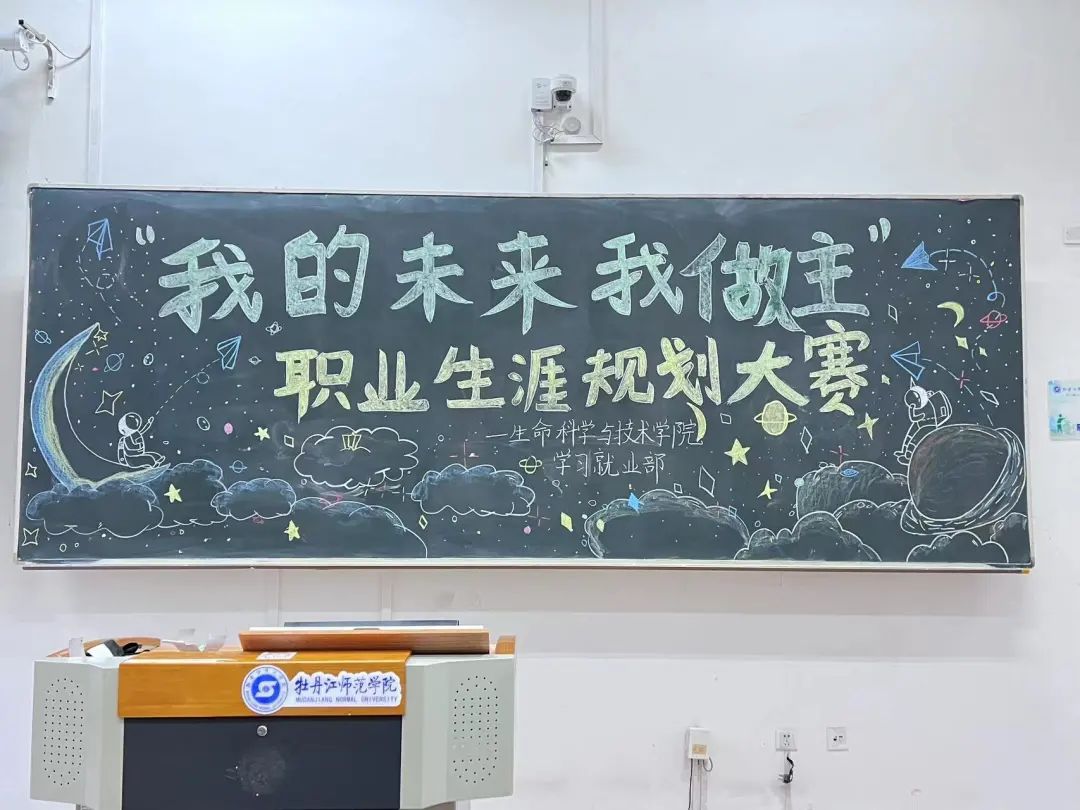 “我的未来 我做主”
职业生涯规划大赛
—生命科学与技术学院
学习就业部
牡丹江师范学院
MUDANJIANG NORMAL UNIVERSITY